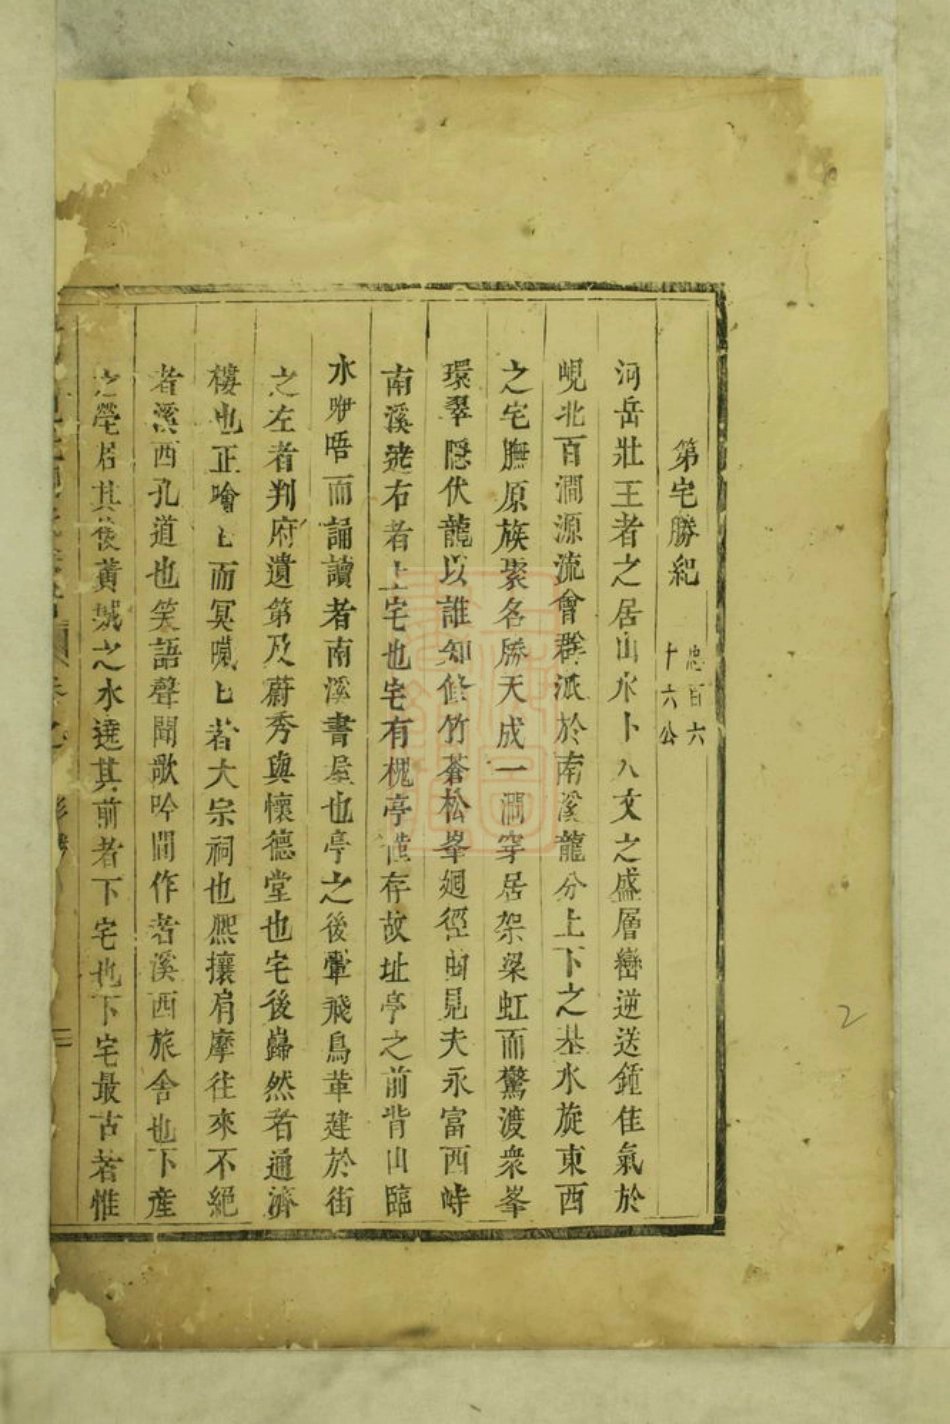 第宅勝紀 忠百六十六公
河岳壯王者之居山水卜人文之盛層巒逆送鍾佳氣於
峴北百澗源流會群派於南溪龍分上下之基水旋東西
之宅膴原族聚名勝天成一澗穿居架梁虹而驚渡衆峯
環翠隱伏龍以誰知修竹蒼松峯廻徑曲見夫永富西峙
南溪遶右者上宅也宅有槐亭僅存故址亭之前背山臨
水咿唔而誦讀者南溪書屋也亭之後翬飛鳥革建於街
之左者判府遺第及蔚秀與懷德堂也宅後巋然者通濟
樓也正噲匕而冥噦匕者大宗祠也熙攘肩摩往來不絕
者溪西孔道也笑語聲聞歌吟間作者溪西旅舍也下產
之塋居其後黃城之水遶其前者下宅也下宅最古者惟
2